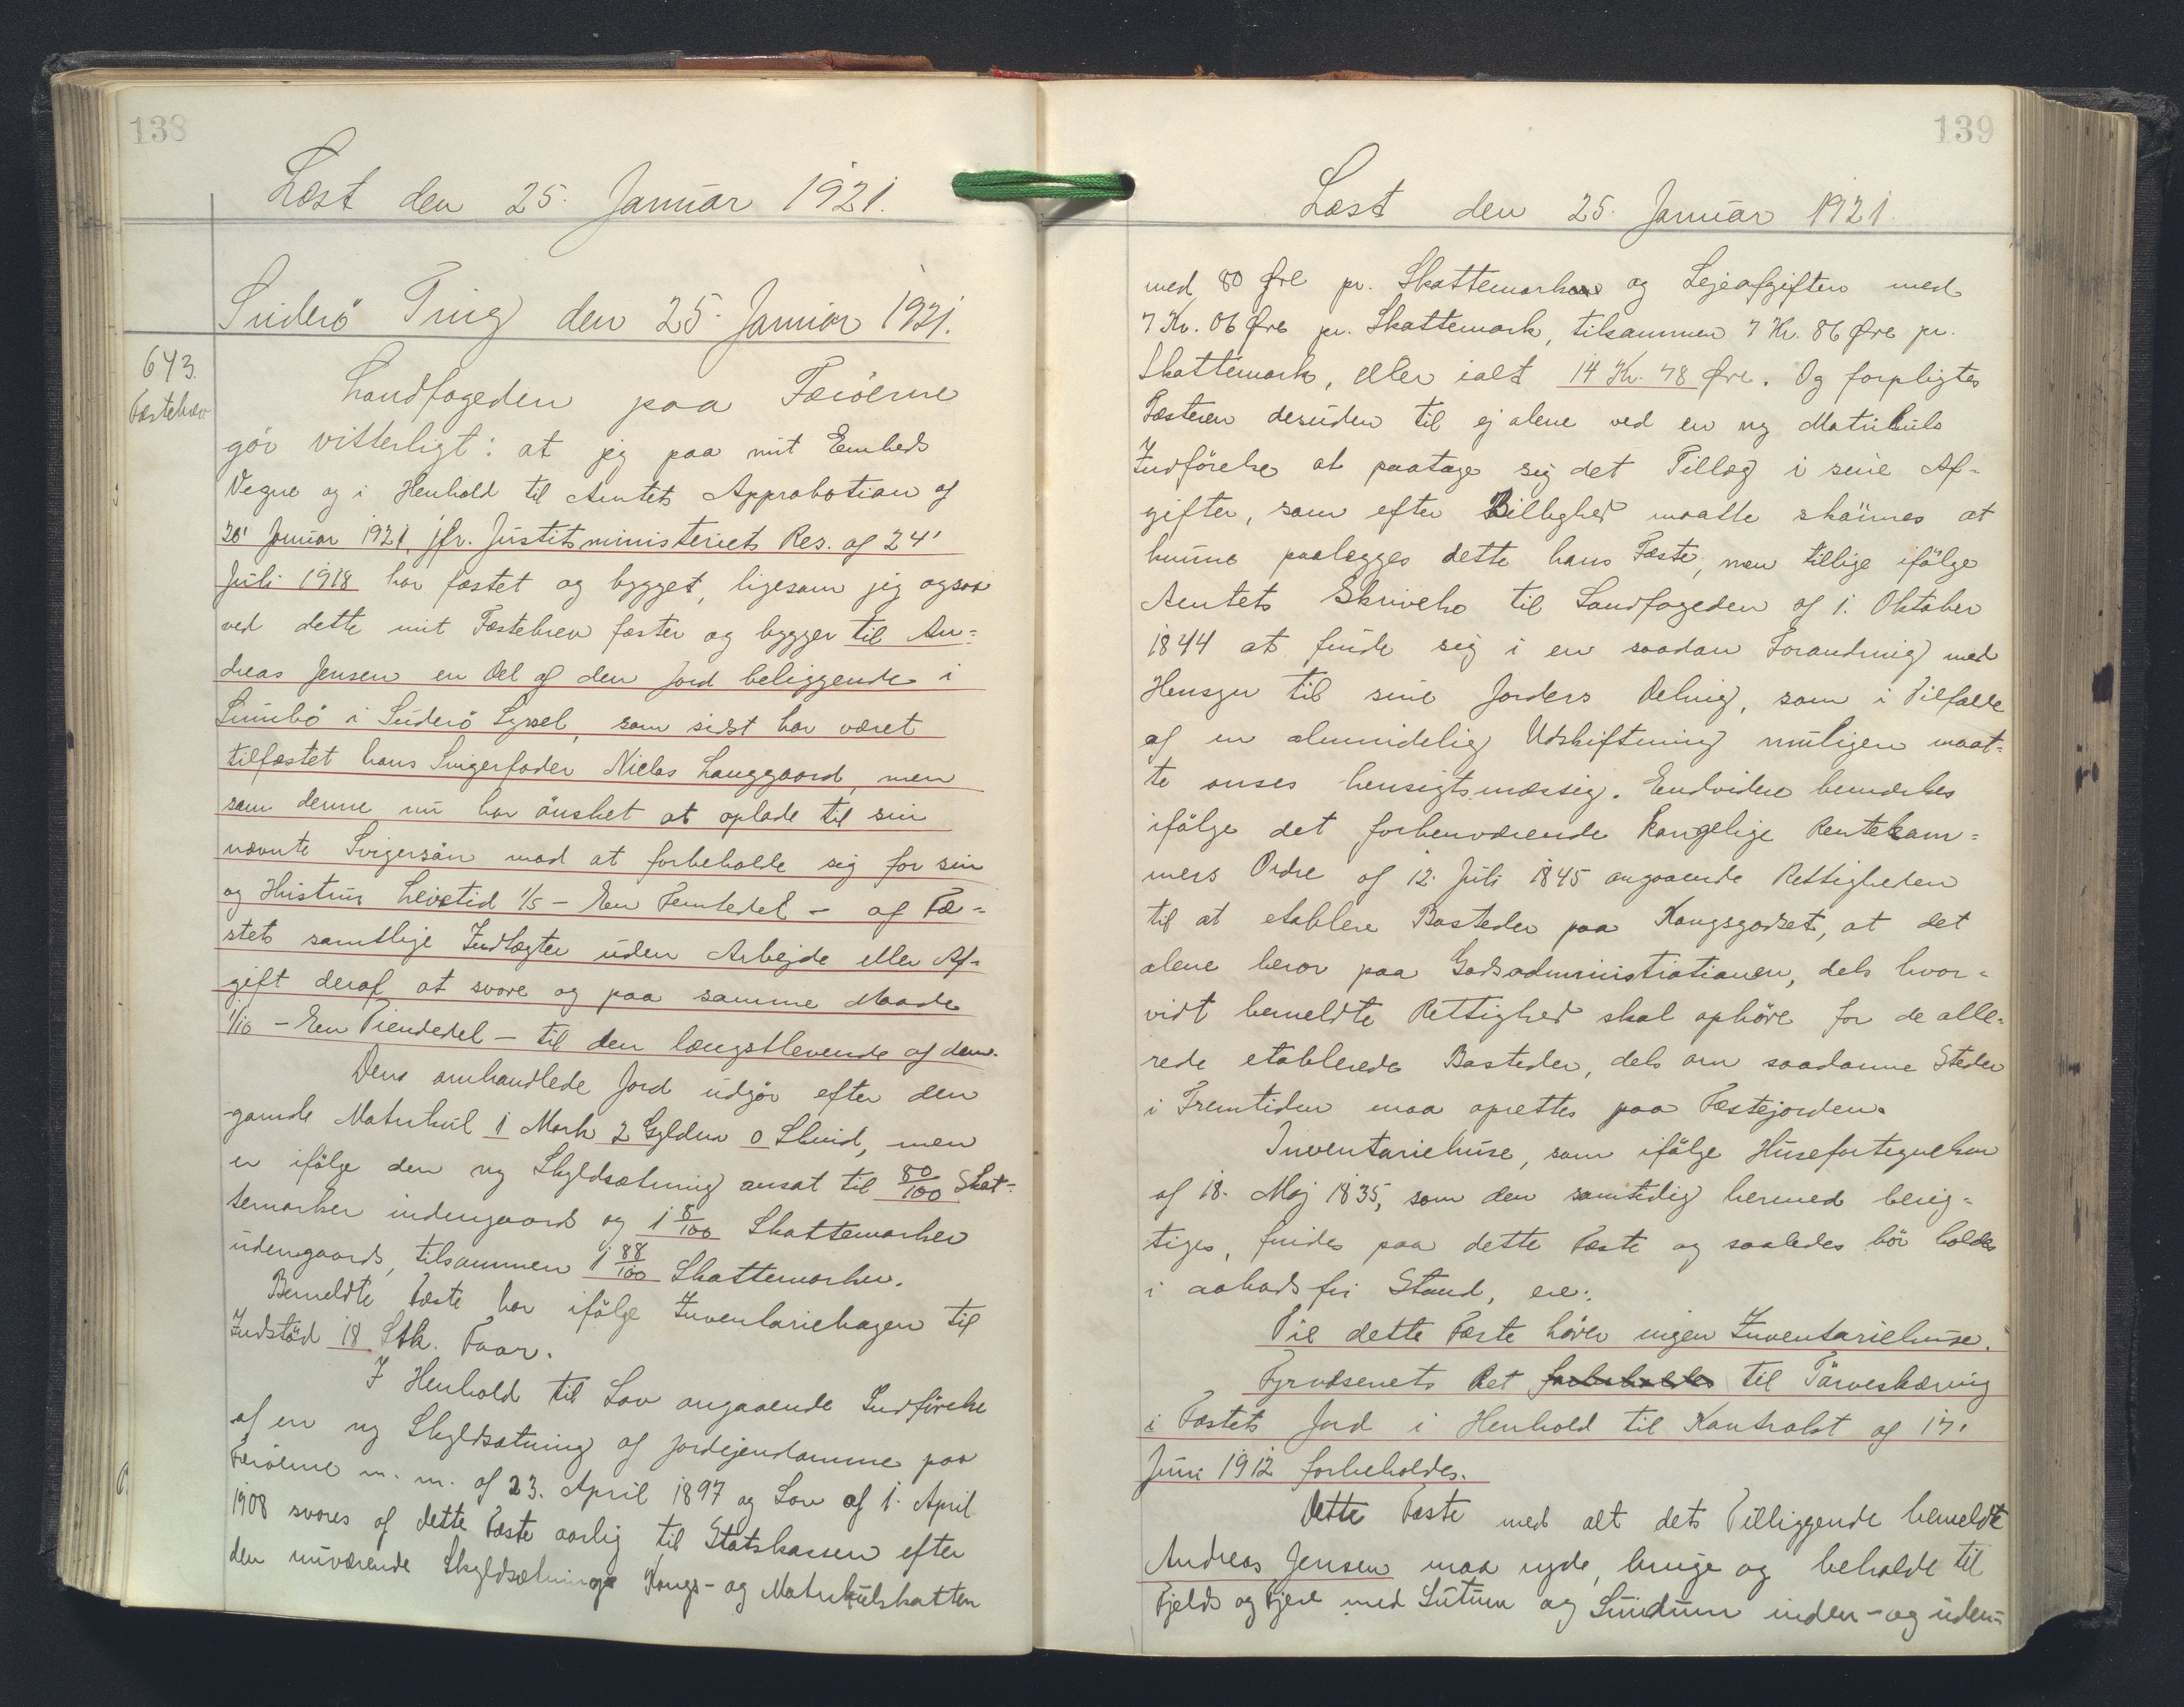 138
Læst den 25. Januar 1921.
Suderö Ting den 25. Januar 1921.
643.
Fæstebrev
Landfogeden paa Færöerne
gör vitterligt: at jeg paa mit Embeds
Vegne og i Henhold til Amtets Approbation af
20' Januar 1921, jfr. Justitsministeriets Res. af 24'
Juli 1918 har fæstet og bygget, ligesom jeg ogsaa
ved dette mit Fæstebrev fæster og bygger til An=
dreas Jensen en Del af den Jord beliggende i
Sumbö i Suderö Syssel, som sidst har været
tilfæstet hans Svigerfader Niclas Langgaard, men
som denne nu har önsket at oplade til sin
nævnte Svigersön mod at forbeholde sig for sin
og Hustrus Levetid 1/5 - Een Femtedel - af Fæ=
stets samtlige Indtægter uden Arbejde eller Af=
gift deraf at svare og paa samme Maade
1/10 - Een Tiendedel - til den længstlevende af dem.
Den omhandlede Jord udgör efter den
gamle Matrikul 1 Mark 2 Gylden 0 Skind, men
er ifölge den ny Skyldsætning ansat til 80/100 Skat=
temarker indengaards og 1 8/100 Skattemarker
udengaards, tilsammen 1 88/100 Skattemarker.
Bemeldte Fæste har ifölge Inventariebogen til
Indstöd 18 Stk. Faar.
I Henhold til Lov angaaende Indförelse
af en ny Skyldsætning af Jordejendomme paa
Færöerne m. m. af 23. April 1897 og Lov af 1. April
1908 svares af dette Fæste aarlig til Statskassen efter
den nuværende Skyldsætning Kongs- og Matrikulskatten
139
Læst den 25. Januar 1921.
med 80 Øre pr. Skattemark og Lejeafgiften med
7 Kr. 06 Øre pr. Skattemark, tilsammen 7 Kr. 86 Øre pr.
Skattemark, eller ialt 14 Kr. 78 Øre. Og forpligtes
Fæsteren desuden til ej alene ved en ny Matrikuls
Indförelse at paatage sig det Tillæg i sine Af=
gifter, som efter Billighed maatte skönnes at
kunne paalægges dette hans Fæste, men tillige ifölge
Amtets Skrivelse til Landfogeden af 1. Oktober
1844 at finde sig i en saadan Forandring med
Hensyn til sine Jorders Deling, som i Tilfælde
af en almindelig Udskiftning muligen maat=
te anses hensigtsmæssig. Endvidere bemærkes
ifölge det forhenværende kongelige Rentekam=
mers Ordre af 12. Juli 1845 angaaende Rettigheden
til at etablere Bosteder paa Kongsgodset, at det
alene beror paa Godsadministrationen, dels hvor=
vidt bemeldte Rettighed skal ophöre for de alle=
rede etablerede Bosteder, dels om saadanne Steder
i Fremtiden maa oprettes paa Fæstejorden.
Inventariehuse, som ifölge Husefortegnelsen
af 18. Maj 1835, som den samtidig hermed berig=
tiges, findes paa dette Fæste og saaledes bör holdes
i aabodsfri Stand, ere:
Til dette Fæste hörer ingen Inventariehuse.
Fyrvæsenets Ret forbeholdes til Törveskæring
i Fæstets Jord i Henhold til Kontrakt af 17'
Juni 1912 forbeholdes.
Dette Fæste med alt dets Tilliggende bemeldte
Andreas Jensen maa nyde, bruge og beholde til
Fjelds og Fjære med Lutum og Lundum inden- og uden=